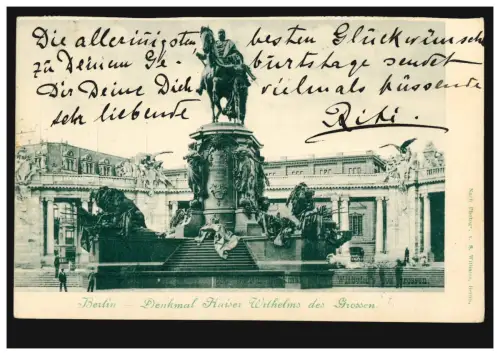 Die allerinnigsten, besten Glückwünsche
zu Deinem Geburtstage sendet
Dir Deine Dich vielmals küssende
sehr liebende Riki.
Berlin Denkmal Kaiser Wilhelms des Grossen
Nach Photogr. v.